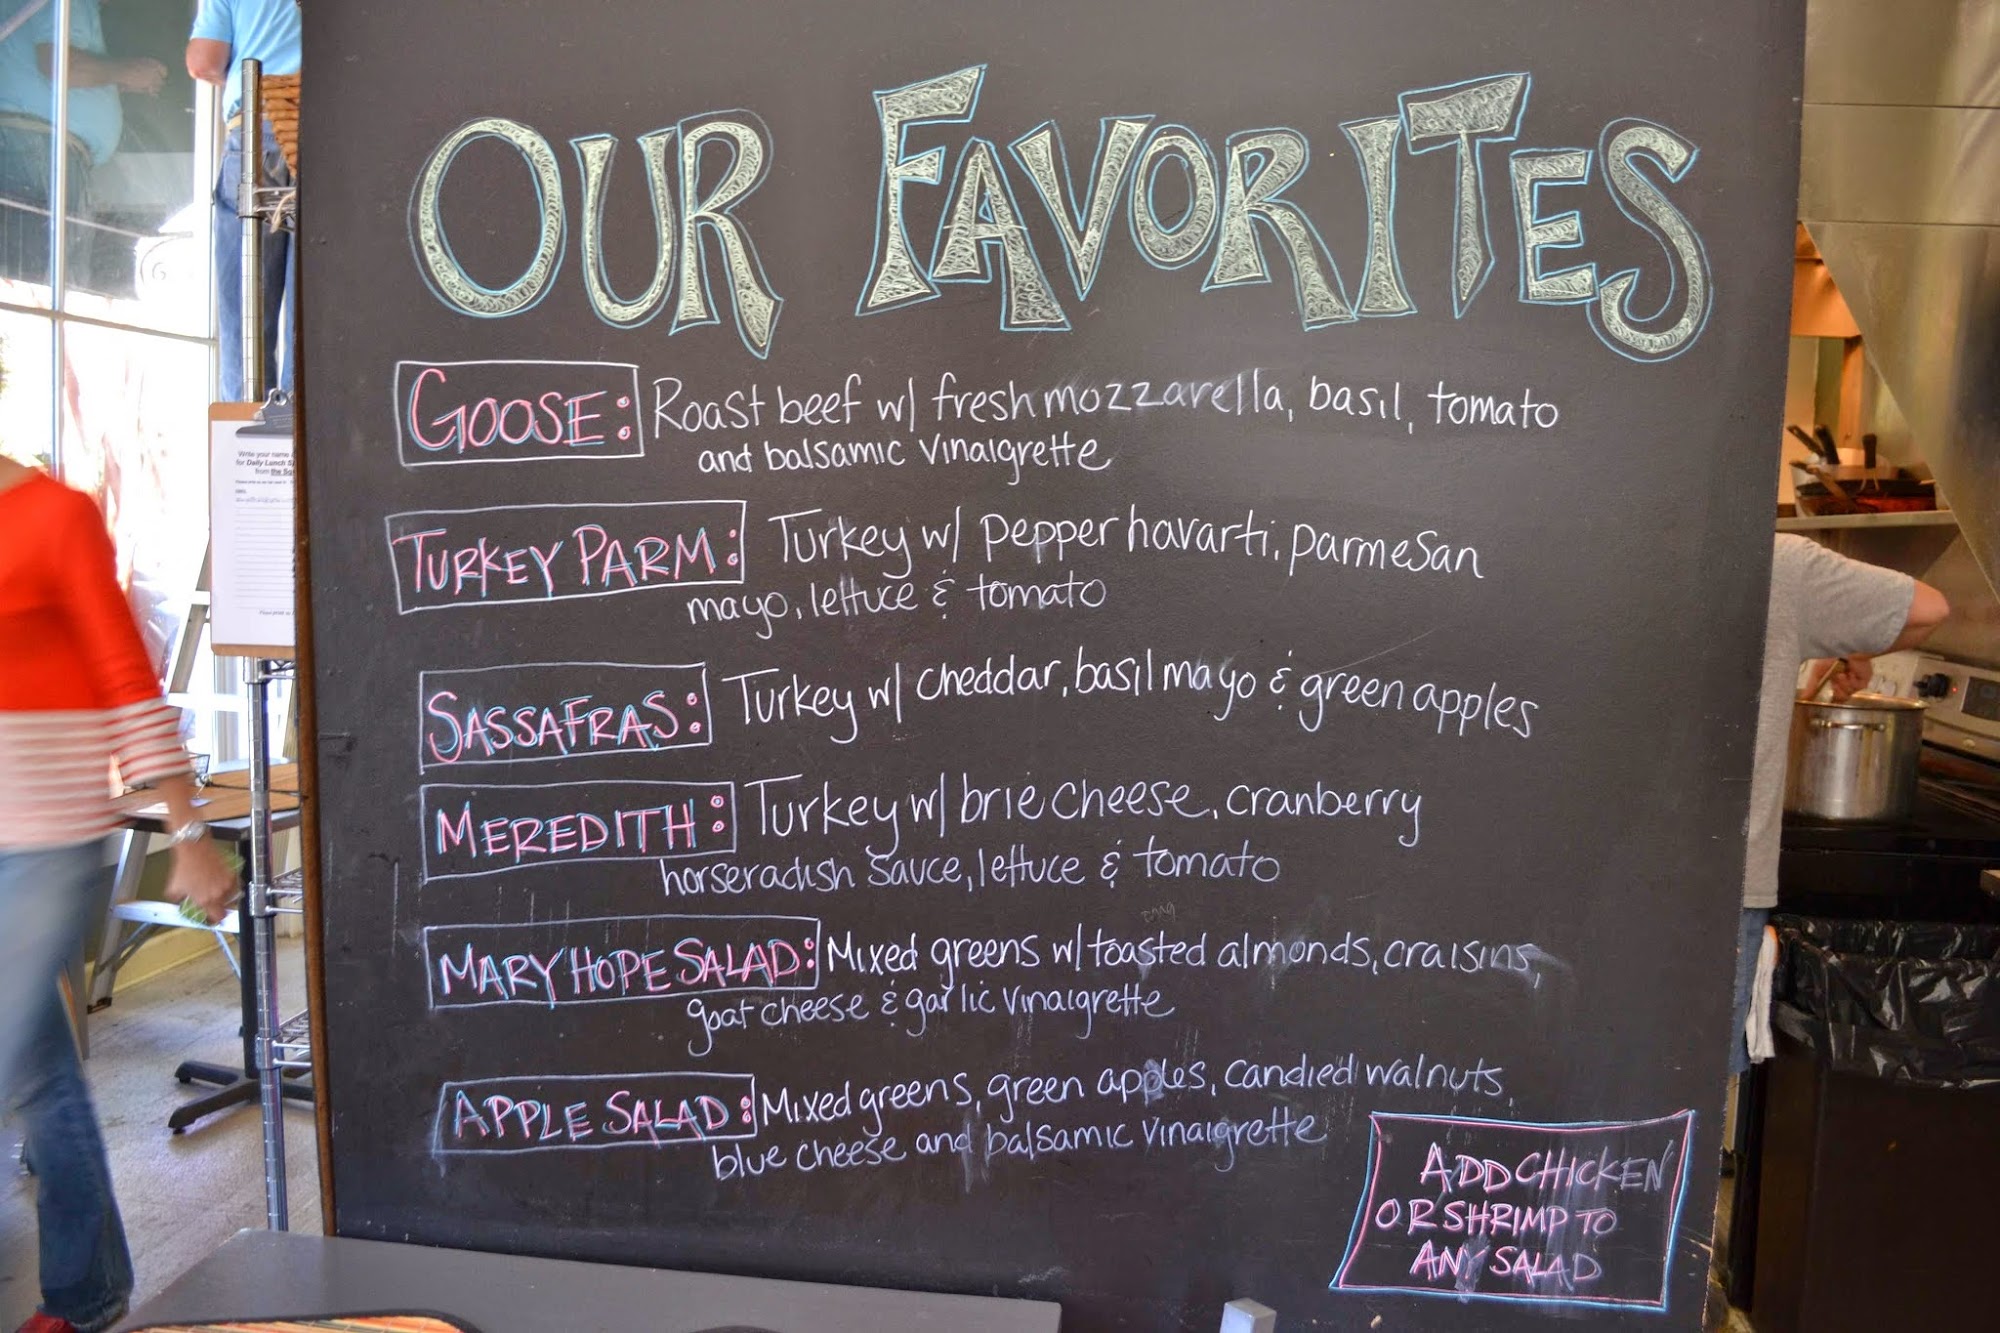 OUR FAVORITES
GOOSE: Roast beef w/ fresh mozzarella, basil, tomato
and balsamic vinaigrette
TURKEY PARM: Turkey w/ pepper havarti, parmesan
mayo, lettuce & tomato
SASSAFRAS: Turkey w/ cheddar, basil mayo & green apples
MEREDITH: Turkey w/ brie cheese, cranberry
horseradish sauce, lettuce & tomato
MARY HOPE SALAD: Mixed greens w/ toasted almonds, craisins,
goat cheese & garlic vinaigrette
APPLE SALAD: Mixed greens, green apples, candied walnuts,
blue cheese and balsamic vinaigrette
ADD CHICKEN
OR SHRIMP TO
ANY SALAD
Write your name
for Daily Lunch
from the